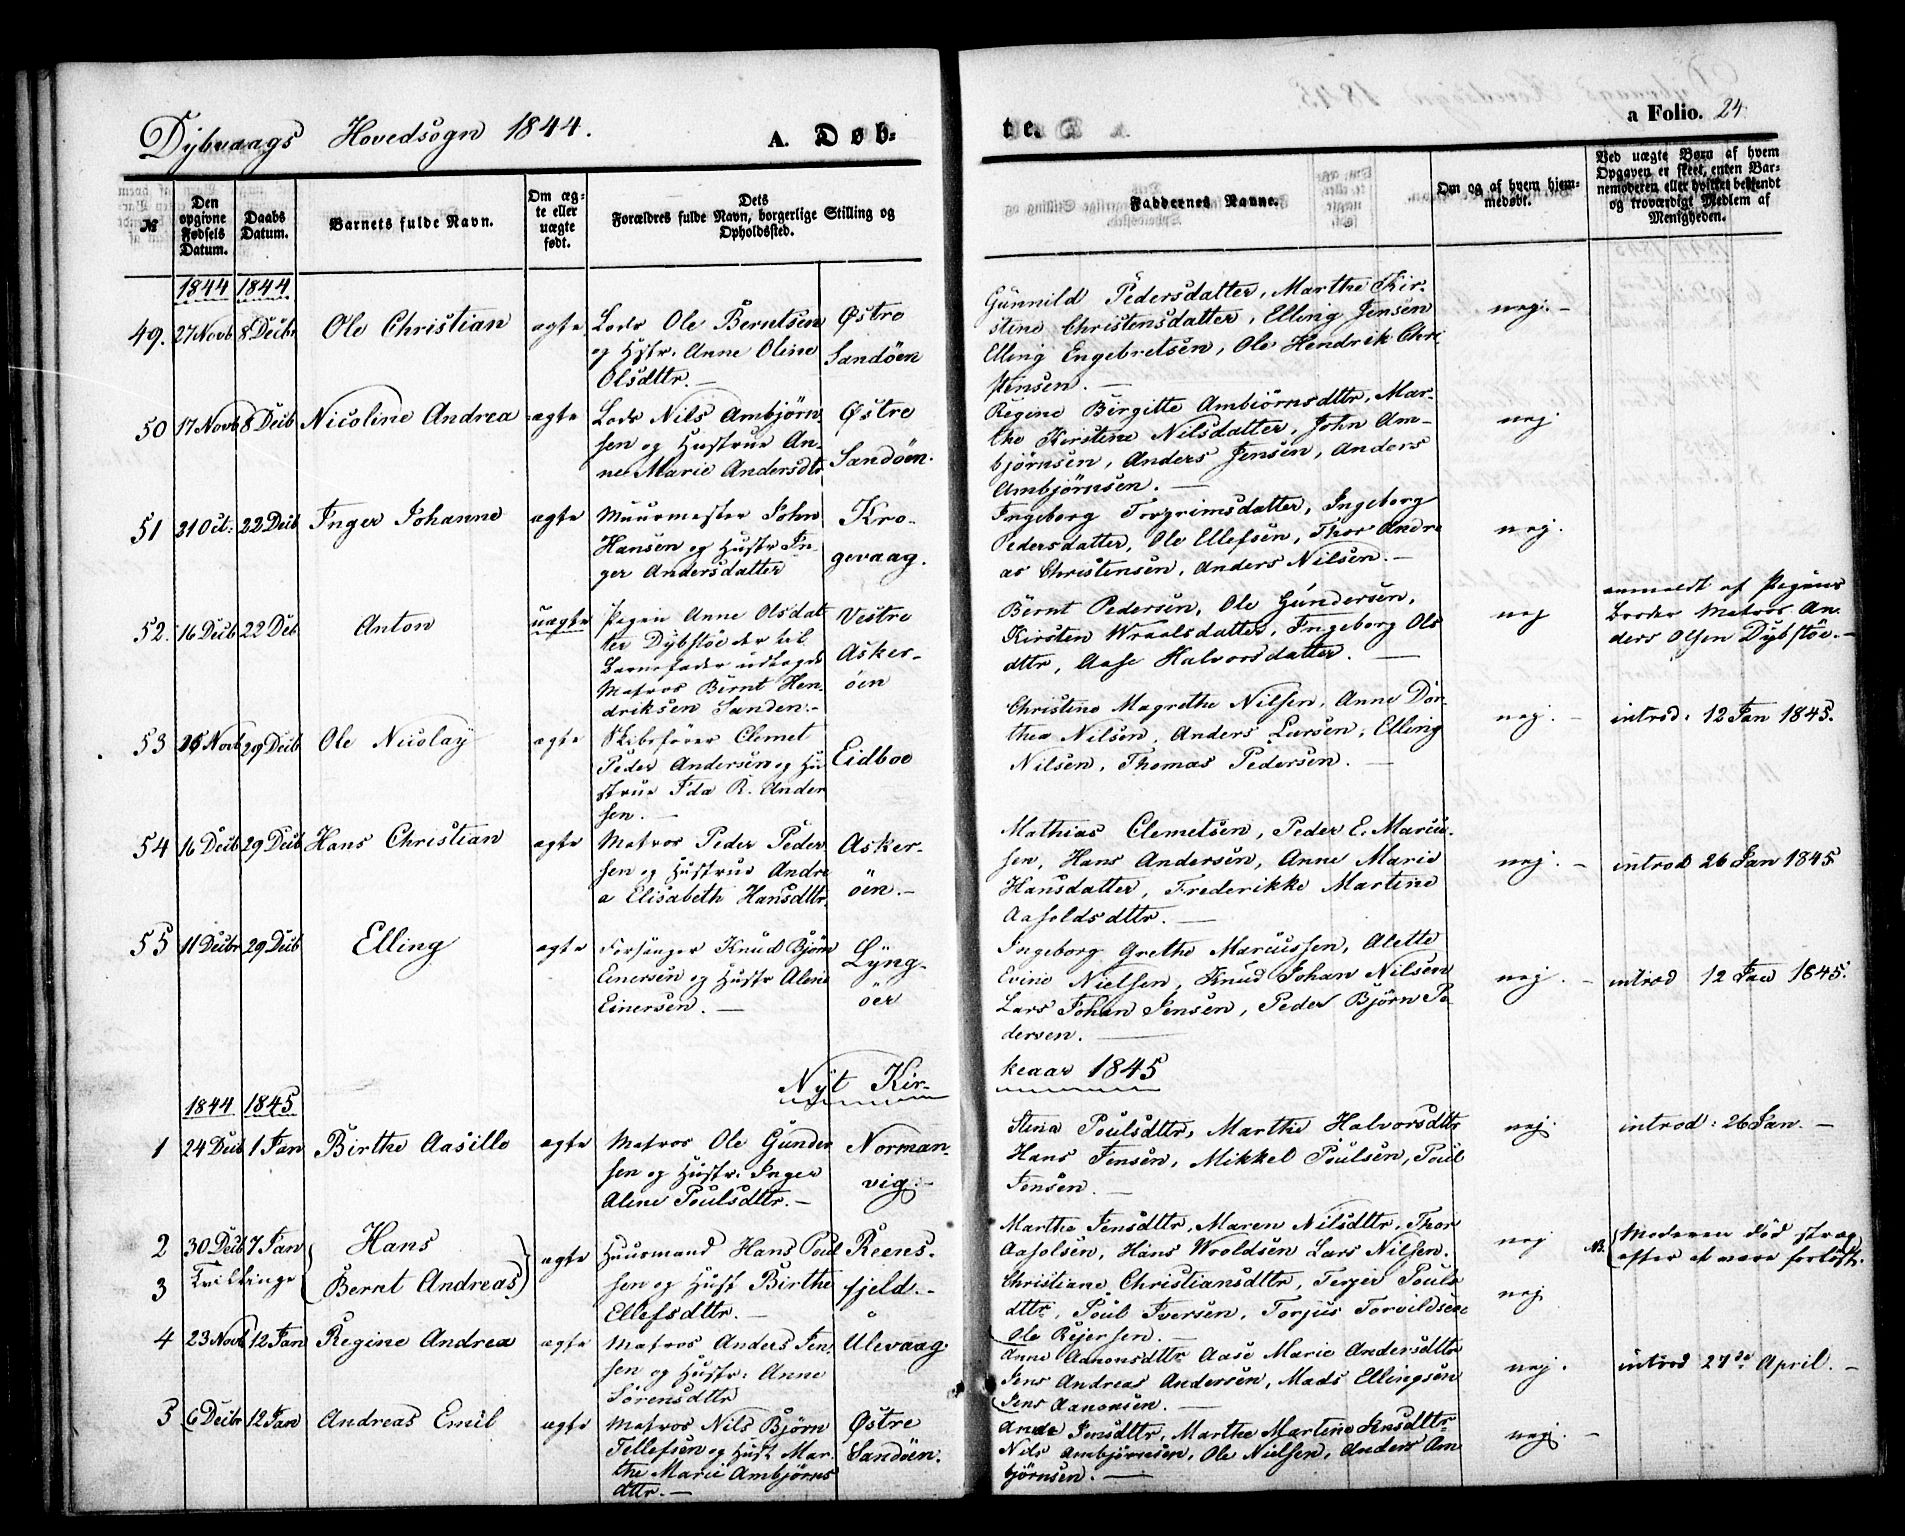 Dybvaags Hovedsogn 1844.
A. Døb-
te.
a Folio. 24
№
Den opgivne Fødsels Datum.
Daabs Datum.
Barnets fulde Navn.
Om æg-
te eller
uægte
født.
Dets
Forældres fulde Navn, borgerlige Stilling og
Opholdssted.
Faddernes Navne.
Om og af hvem hjem-
medøbt.
Ved uægte Børn af hvem
Opgaven er skeet, enten Bar-
nemoderen eller hvilket bekjendt
og troværdigt Medlem af
Menigheden.
1844 1844
49. 27 Novb 8 Decbr Ole Christian ægte
Lods Ole Berntsen
og Hstr. Anne Oline
Olsdttr. –
Østre
Sandöen
Gunnild Pedersdatter, Marthe Kir-
stine Christensdatter, Elling Jensen
Elling Engebretsen, Ole Hendrik Chri
stensen. –
nej. –
50 17 Novb 8 Decb Nicoline Andrea ægte
Lods Nils Ambjörn-
sen og Hustrue An-
ne Marie Andersdtr
Østre
Sandöen.
Regine Birgitte Ambiörnsdttr, Mar-
the Kirstine Nilsdatter, John Am-
björnsen, Anders Jensen, Anders
Ambjörnsen. –
nej
51 21 Oct. 22 Decb Inger Johanne ægte
Muurmester John
Hansen og Hustr In-
ger Andersdatter
Kro-
gevaag.
Ingeborg Torgrimsdatter, Ingeborg
Pedersdatter, Ole Ellefsen, Thor Andre
as Christensen, Anders Nilsen. –
nej.
52. 16 Decb 22 Deb. Anton uægte
Pigen Anne Olsdat
ter Dybstöe der til
Barnefader udlagde
Matros Bernt Hen-
driksen Sanden. –
Vestre
Asker-
öen
Bernt Pedersen, Ole Gundersen,
Kirsten Wraalsdatter, Ingeborg Ols
dttr, Aase Halvorsdatter. –
nej
anmeldt af Pigens
Broder Matros An-
ders Olsen Dybstöe. –
53 Novb 29 Decb Ole Nicolay ægte
Skibsförer Clemet
Peder Andersen og Hu
strue Ida R. Ander
sen. –
Eidboe
Christine Magrethe Nilsen, Anne Dor-
thea Nilsen, Anders Larsen, Elling
Nilsen, Thomas Pedersen. –
nej. –
introd: 12 Jan 1845.
54 16 Decb 29 Decb Hans Christian ægte
Matros Peder Peder
sen og Hustrue Andre
a Elisabeth Hansdttr.
Asker-
öen. –
Mathias Clemetsen, Peder E. Marcu-
sen, Hans Andersen, Anne Marie
Hansdatter, Frederikke Martine
Aasoldsdttr. –
nej. –
introd 26 Jan 1845
55 11 Decbr 29 Decb Elling ægte
Forsanger Knud Björn
Einersen og Hustr Alene
Einersen. –
Lyng-
öer
Ingeborg Grethe Marcussen, Alette
Evine Nielsen, Knud Johan Nilsen
Lars Johan Jensen, Peder Björn Pe-
dersen. –
nej. –
introd 12 Jan 1845.
Nyt Kir-
keaar 1845
1844 1845
1 24 Decb 1 Jan Birthe Aasille ægte
Matros Ole Gunder
sen og Hustr. Inger
Alene Poulsdttr. –
Norman-
vig. –
Stena Poulsdttr, Marthe Halvorsdttr
Hans Jensen, Mikkel Poulsen, Poul
Jensen. –
nej.
introd: 26 Jan. –
2 30 Decb 7 Jan Hans
3 Tvillinge Bernt Andreas
ægte
Huusmand Hans Poul
sen og Hust Birthe
Ellefsdttr. –
Reens-
fjeld. –
Marthe Jensdttr, Maren Nilsdttr, Thor
Aasolsen, Hans Wroldsen Lars Nilsen.
nej
Christiane Christiansdttr, Terjer Pouls
dttr, Poul Iversen, Torjus Torvildsen
Ole Rejersen. –
nej
NB. Moderen död strax
efter at være forlöst.
4 23 Novb 12 Jan Regine Andrea ægte
Matros Anders Jen-
sen og Hustr. Anne
Sörensdttr
Ulevaag
Anne Aanonsdttr Aase Marie Andersdttr
Jens Andreas Andersen, Mads Ellingsen
Jens Aanonsen. –
nej.
introd 27de April. –
5 6 Decbr 12 Jan Andreas Emil ægte
Matros Nils Björn
Tellefsen og Hust Mar-
the Marie Ambjörns
dttr. –
Østre
Sandöen.
Jensdttr, Marthe Martine Jensdttr
Nils Ambjörnsen, Ole Nielsen, Anders Am
björnsen. –
nej. –